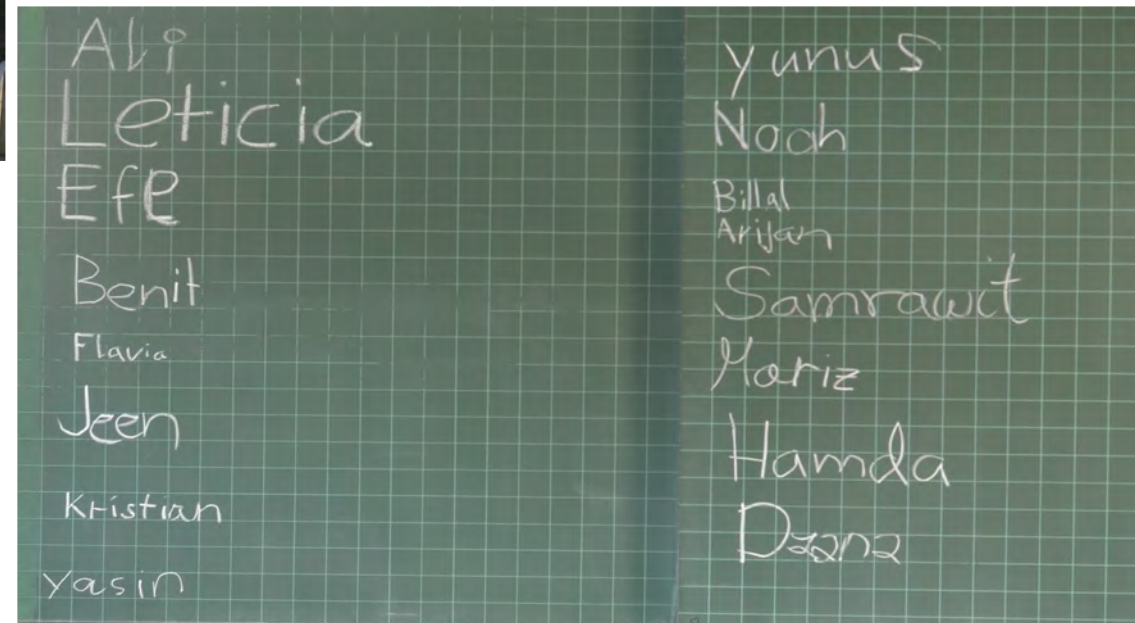 Ali
Leticia
Efe
Benit
Flavia
Jeen
Kristian
yasin
yunus
Noah
Billal
Arijan
Samrawit
Hamda